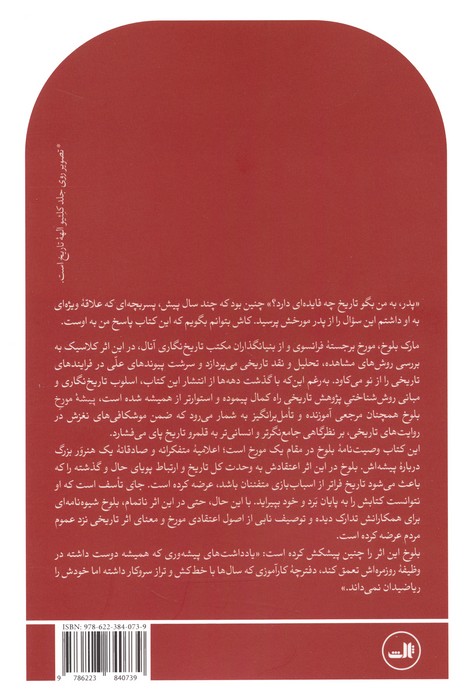 * تصویر روی جلد کلئیو الههٔ تاریخ است.
«پدر، به من بگو تاریخ چه فایده‌ای دارد؟» چنین بود که چند سال پیش، پسربچه‌ای که علاقهٔ ویژه‌ای
به او داشتم این سؤال را از پدر مورخش پرسید. کاش بتوانم بگویم که این کتاب پاسخ من به اوست.
مارک بلوخ، مورخ برجستهٔ فرانسوی و از بنیانگذاران مکتب تاریخ‌نگاری آنال، در این اثر کلاسیک به
بررسی روش‌های مشاهده، تحلیل و نقد تاریخی می‌پردازد و سرشت پیوندهای علّی در فرایندهای
تاریخی را از نو می‌کاود. به‌رغم این‌که با گذشت دهه‌ها از انتشار این کتاب، اسلوب تاریخ‌نگاری و
مبانی روش‌شناختی پژوهش تاریخی راه کمال پیموده و استوارتر از همیشه شده است، پیشهٔ مورخ
بلوخ همچنان مرجعی آموزنده و تأمل‌برانگیز به شمار می‌رود که ضمن موشکافی‌های نغزش در
روایت‌های تاریخی، بر نظرگاهی جامع‌نگرتر و انسانی‌تر به قلمرو تاریخ پای می‌فشارد.
این کتاب وصیت‌نامهٔ بلوخ در مقام یک مورخ است؛ اعلامیهٔ متفکرانه و صادقانهٔ یک هنرور بزرگ
دربارهٔ پیشه‌اش. بلوخ در این اثر اعتقادش به وحدت کل تاریخ و ارتباط پویای حال و گذشته را که
باعث می‌شود تاریخ فراتر از اسباب‌بازی متفننان باشد، عرضه کرده است. جای تأسف است که او
نتوانست کتابش را به پایان بَرد و خود بپیراید. با این حال، حتی در این اثر ناتمام، بلوخ شیوه‌نامه‌ای
برای همکارانش تدارک دیده و توصیف نابی از اصول اعتقادی مورخ و معنای اثر تاریخی نزد عموم
مردم عرضه کرده است.
بلوخ این اثر را چنین پیشکش کرده است: «یادداشت‌های پیشه‌وری که همیشه دوست داشته در
وظیفهٔ روزمره‌اش تعمق کند، دفترچهٔ کارآموزی که سال‌ها با خط‌کش و تراز سروکار داشته اما خودش را
ریاضیدان نمی‌داند.»
ISBN: 978-622-384-073-9
9 786223 840739
ثالث